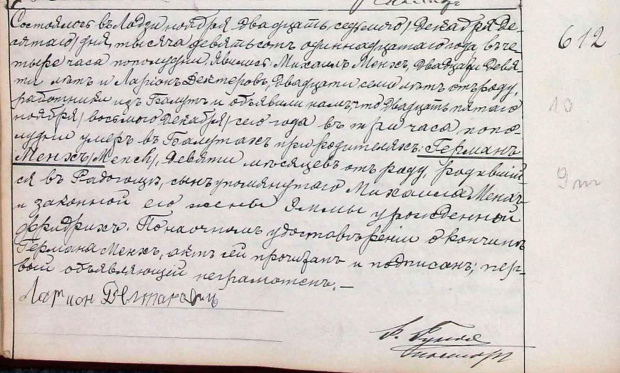 Состоялось въ Лодзи ноября двадцать седьмого / декабря де-
сятаго / дня, тысяча девятьсотъ одиннадцатаго года въ че-
тыре часа пополудни. Явились Михаилъ Менхъ, двадцати девя-
ти лѣтъ и Ларіонъ Дектеровъ двадцати семи лѣтъ отъ роду,
работники изъ Балутъ и объявили намъ, что двадцать пятаго
ноября / восьмого декабря / сего года въ три часа попо-
лудни умеръ въ Балутахъ при родителяхъ: Германъ
Менхъ / Менch /, девяти мѣсяцевъ отъ роду, родивший-
ся въ Радогощѣ, сынъ упомянутаго Михаила Менха
и законной его жены Эммы урожденной
Фридрихъ. По наочномъ удостовѣреніи о кончинѣ
Германа Менхъ, актъ сей прочитанъ и подписанъ; пер-
вый объявляющій неграмотенъ. —
Ларион
612
10
9 m